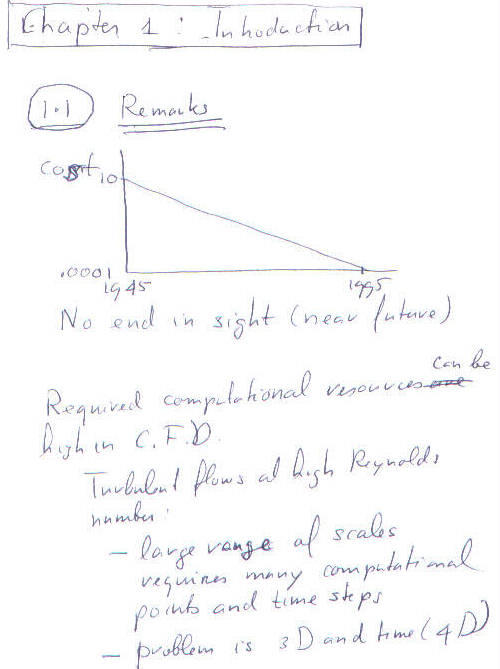 Chapter 1 : Introduction
1.1 Remarks
Cost 10
.0001
1945 1995
No end in sight (near future)
can be
Required computational resources are
high in C.F.D.
Turbulent flows at high Reynolds
number:
- large range of scales
requires many computational
points and time steps
- problem is 3D and time (4D)